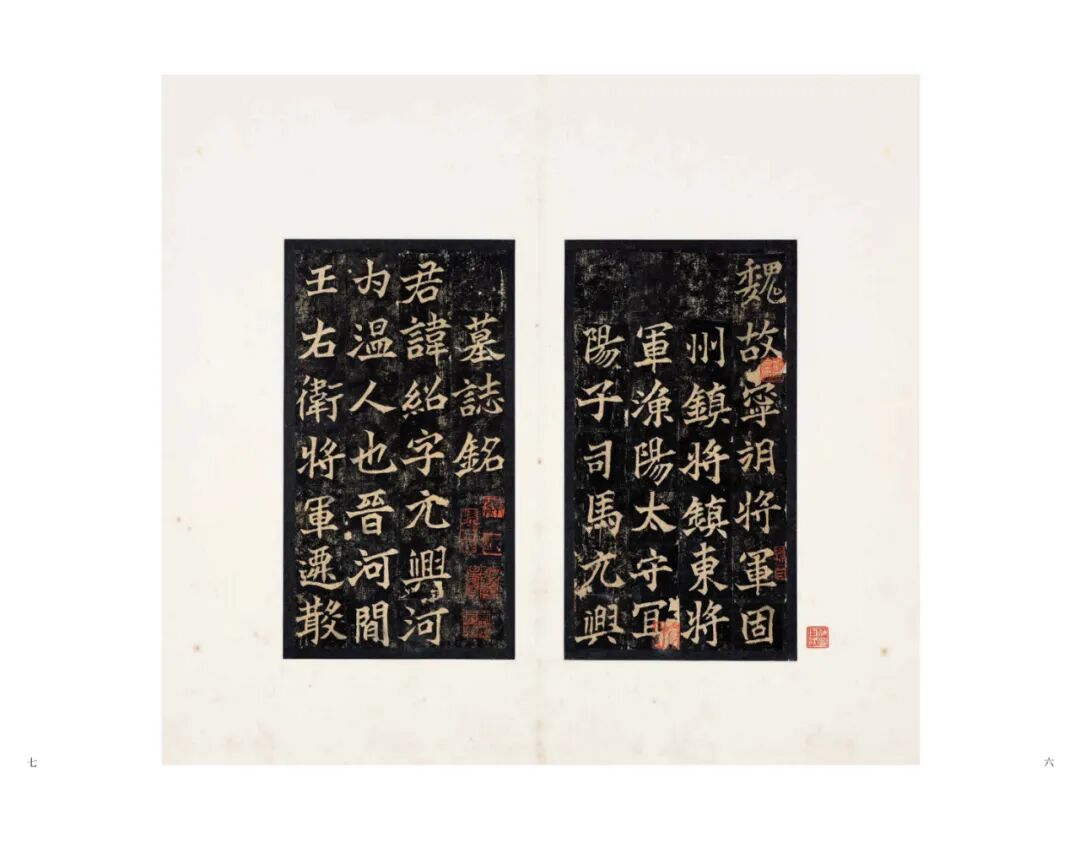 魏故寧朔將軍固
州鎮將鎮東將
軍漁陽太守宜
陽子司馬元興
墓誌銘
君諱紹字元興河
内温人也晉河間
王右衛將軍遷散
六
七